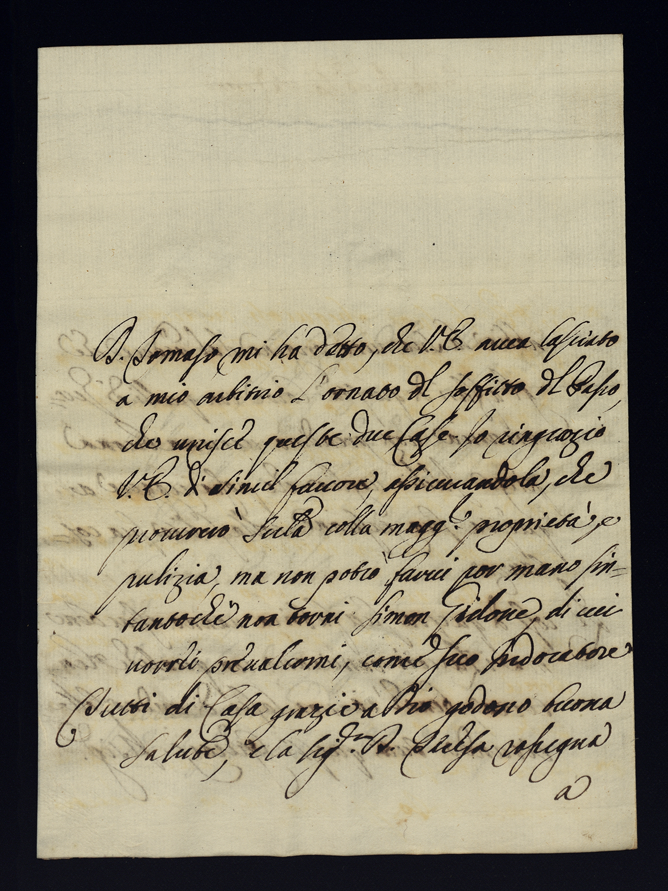 D. Tomaso mi ha detto, che V.E. avea lasciato
a mio arbitrio l'ornato del soffitto del Passo,
che unisce queste due Case. Io ringrazio
V.E. di simil favore, assicurandola, che
procurerò farla colla magg.e proprietà, e
pulizia, ma non potrò farci por mano sin=
tantochè non torni Simon, di cui
vorrei prevalermi, come suo Indoratore
Tutti di Casa grazie a Dio godono buona
salute, e la Sig.ra D. Teresa rassegna
a